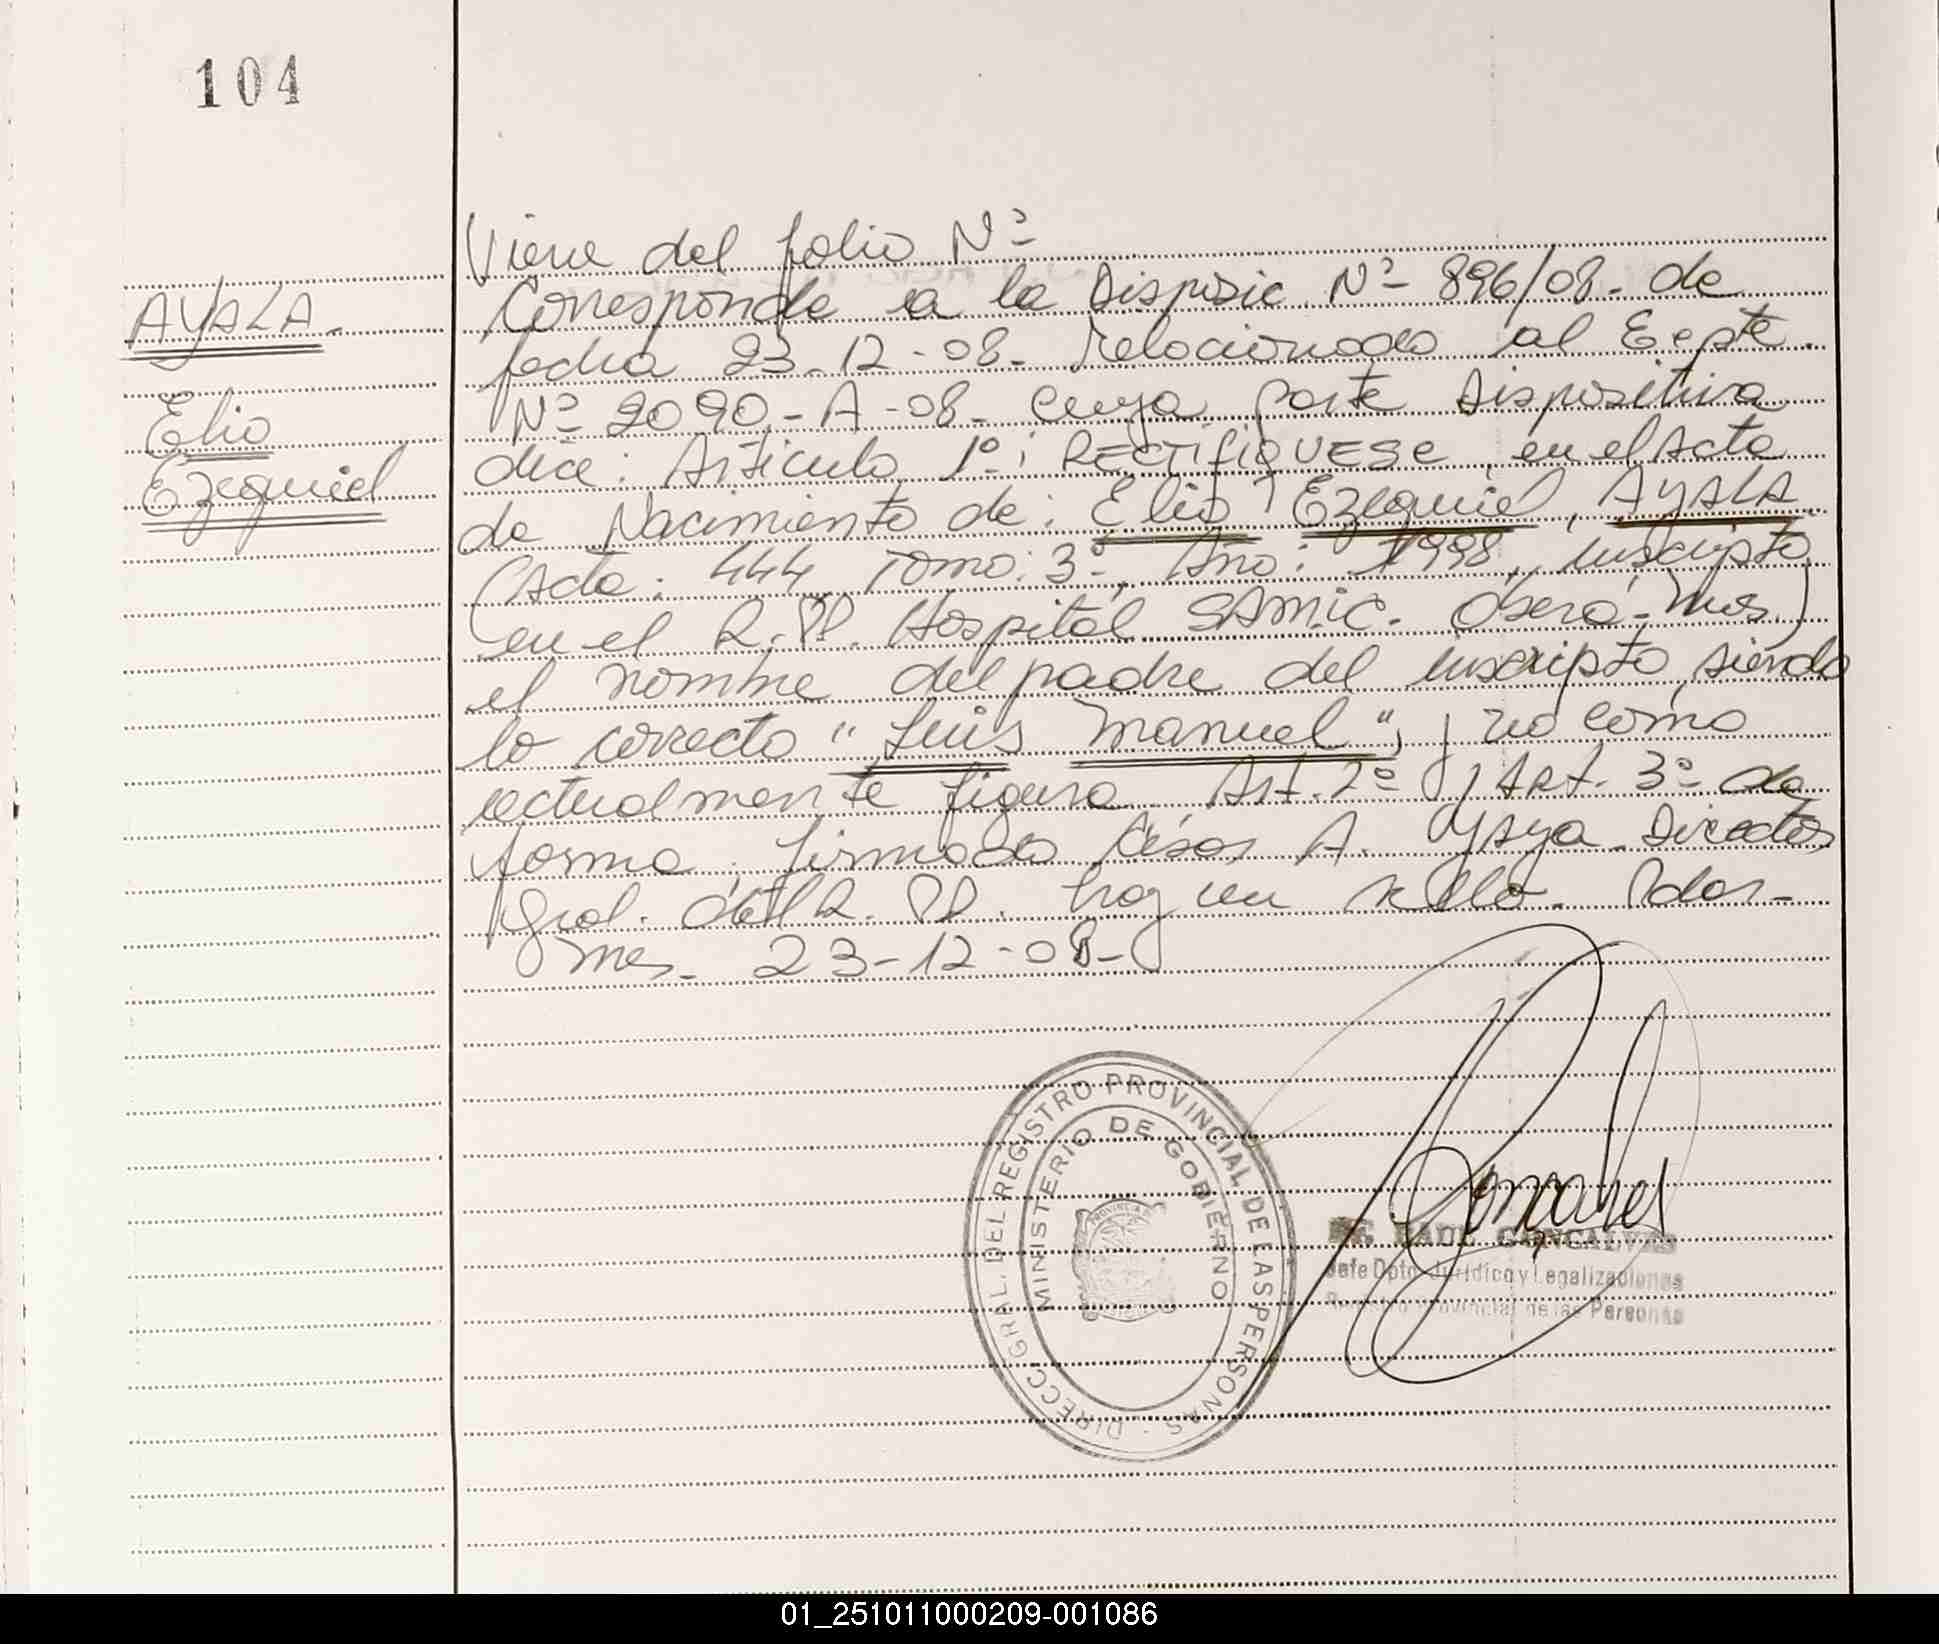 104
Viene del folio Nº
AYALA.
Corresponde a la Disposic. Nº 896/08. de
fecha 23-12-08. Relacionado al Expte.
Elio
Nº 2090-A-08- cuya parte dispositiva
Ezequiel
dice: Artículo 1º: RECTIFIQUESE, en el Acta
de Nacimiento de: Elio Ezequiel, AYALA
(Acta: 444 Tomo: 3º, Año: 1998, inscripto
en el R.PP. Hospital SAMIC. Oberá-Mnes.)
el nombre del padre del inscripto, siendo
lo correcto "Luis Manuel"; y no como
actualmente figura. Art. 2º y Art. 3º de
forma. Firmado César A. Yaya. Director
Gral. del R. PP. hay un sello. Pdas-
mes. 23-12-08-
DIRECC. GRAL. DEL REGISTRO PROVINCIAL DE LAS PERSONAS
MINISTERIO DE GOBIERNO
PROVINCIA
RAUL GONCALVES
Jefe Dpto. Jurídico y Legalizaciones
Registro Provincial de las Personas
01_251011000209-001086